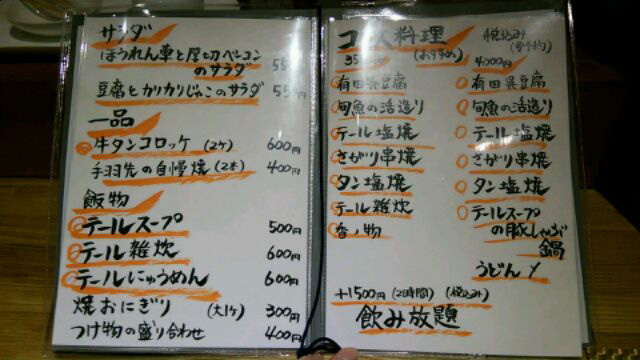 サラダ
ほうれん草と厚切ベーコン
のサラダ 55
豆腐とカリカリじゃこのサラダ 55円
一品
牛タンコロッケ (2ケ) 600円
手羽先の自慢焼 (2本) 400円
飯物
テールスープ 500円
テール雑炊 600円
テールにゅうめん 600円
焼おにぎり (大1ケ) 300円
つけ物の盛り合わせ 400円
料理 税込み
(おすすめ) (要予約)
35
有田呉豆腐
旬魚の活造り
テール塩焼
さがり串焼
タン塩焼
テール雑炊
香ノ物
4,000円
有田呉豆腐
旬魚の活造り
テール塩焼
さがり串焼
タン塩焼
テールスープ
の豚しゃぶ
鍋
うどん〆
+1500円 (2時間) (税込み)
飲み放題